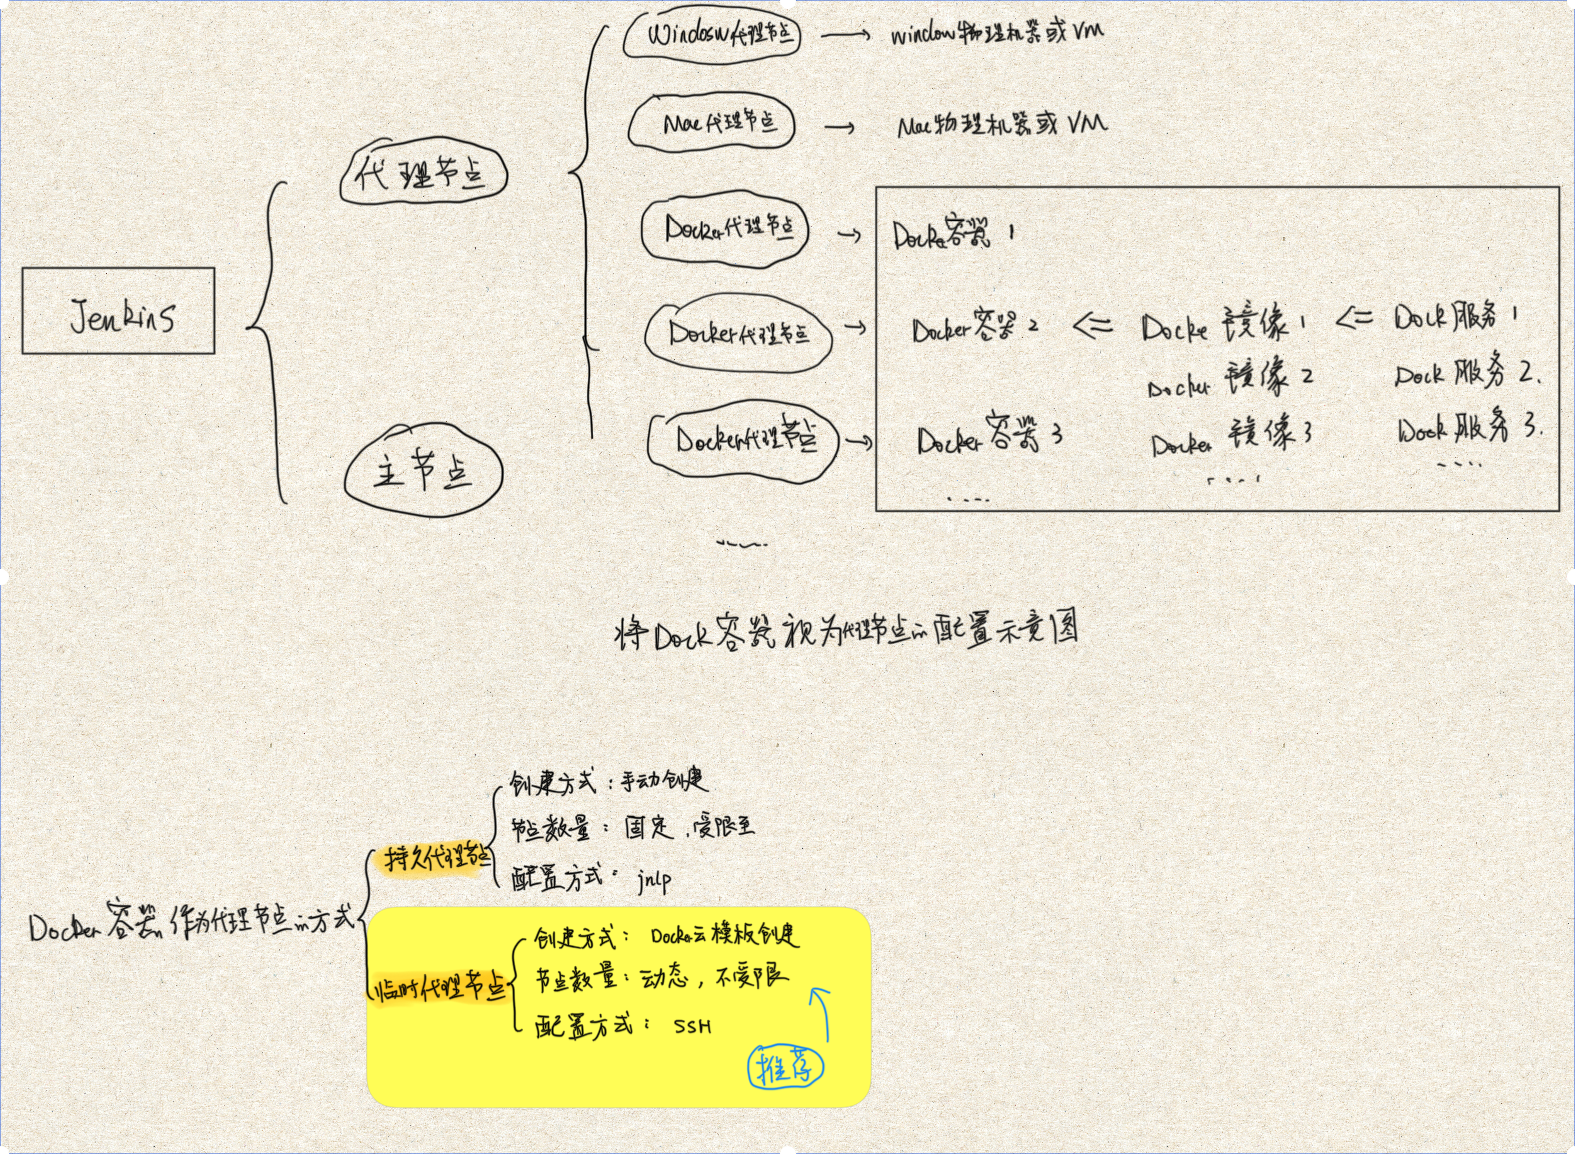 Windosw代理节点 → window物理机器或VM
Mac代理节点 → Mac物理机器或VM
代理节点
Docker代理节点 → Docke容器 1
Jenkins
Docker代理节点 → Docker容器 2 <= Docke 镜像 1 <= Dock服务 1
Docker 镜像 2 Dock 服务 2.
Docker代理节点 → Docker 容器 3 Docker 镜像 3 Dock 服务 3.
主节点
....
将Dock容器视为代理节点的配置示意图
创建方式：手动创建
节点数量：固定，受限至
持久代理节点
配置方式：jnlp
Docker 容器 作为代理节点的方式
创建方式：Docker云模板创建
节点数量：动态，不受限
临时代理节点
配置方式：SSH
推荐